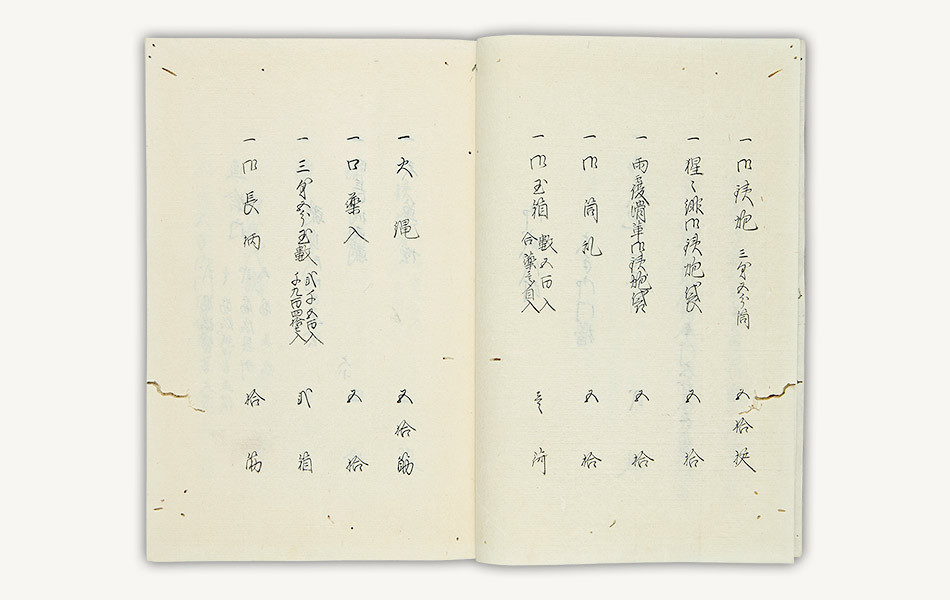 一 御鉄炮 三匁五分筒 五拾挺
一 猩々緋御鉄炮袋 五拾
一 雨覆滑革御鉄炮袋 五拾
一 御筒乱 五拾
一 御玉箱 数五百入 合薬入 壱荷
一 火縄 五拾筋
一 口薬入 五拾
一 三匁五分玉数 弐千五百入 千九百四拾入 弐箱
一 御長柄 拾筋